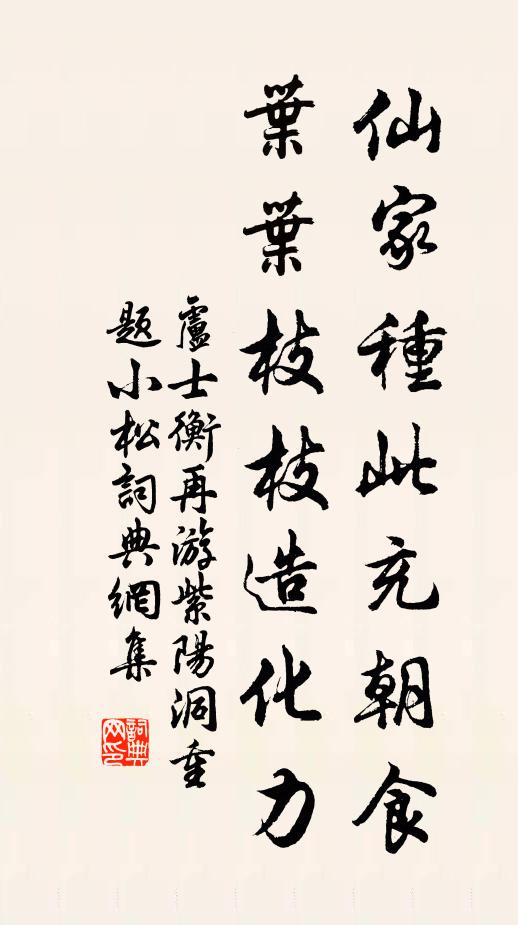 仙家種此充朝食
葉葉枝枝造化力
盧士衡再游紫陽洞重
題小松詞典網集
詞典网印